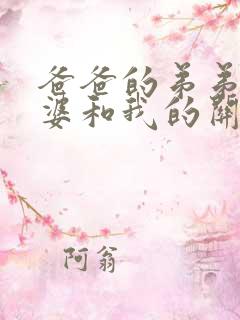 爸爸的弟弟
婆和我的関
阿翁